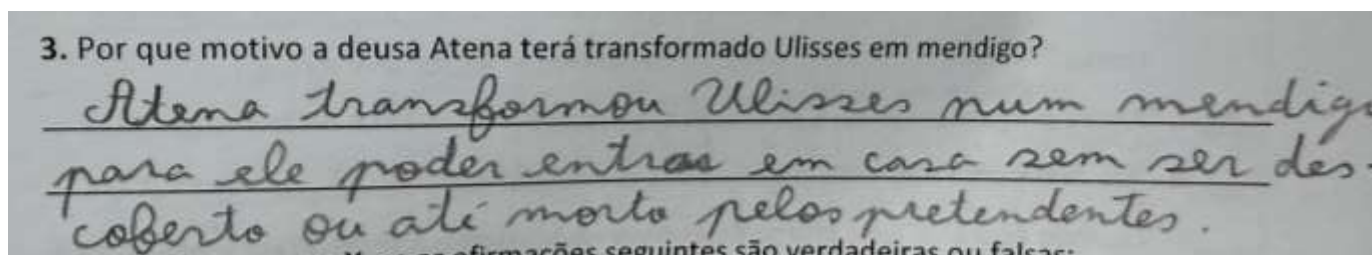 3. Por que motivo a deusa Atena terá transformado Ulisses em mendigo?
Atena transformou Ulisses num mendig
para ele poder entrar em casa sem ser des-
coberto ou até morto pelos pretendentes.
afirmações seguintes são verdadeiras ou falsas: